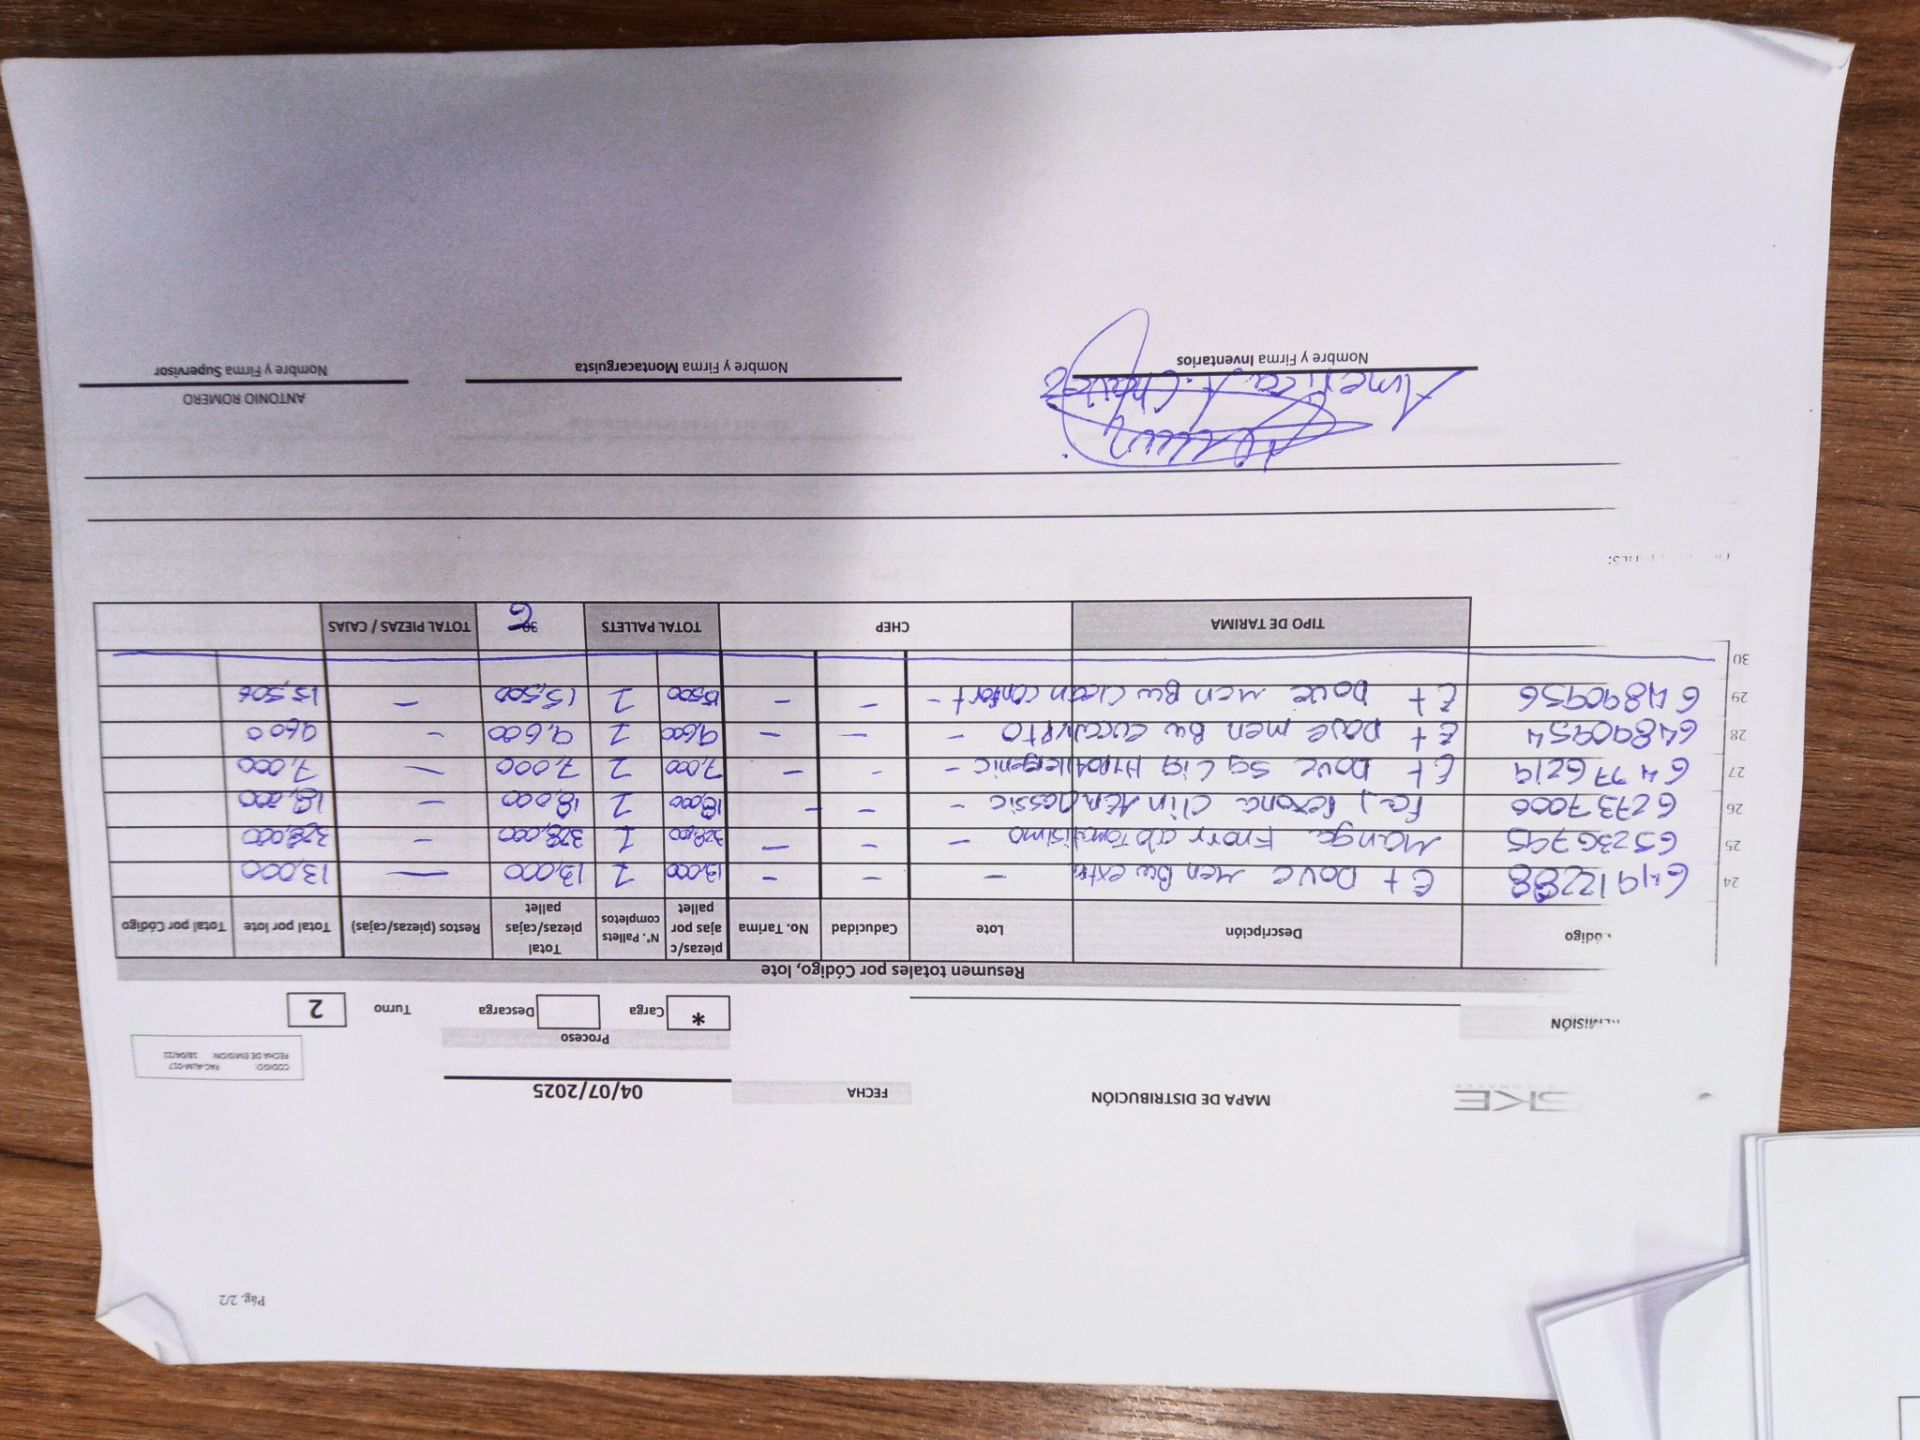 Pág. 2/2
SKE
MAPA DE DISTRIBUCIÓN
FECHA
04/07/2025
CODIGO: FAC-ALM-017
FECHA DE EMISIÓN 18/04/22
MISIÓN
Proceso
* Carga
Descarga
Turno 2
Resumen totales por Código, lote
ódigo Descripción Lote Caducidad No. Tarima piezas/c ajas por pallet N°. Pallets completos Total piezas/cajas pallet Restos (piezas/cajas) Total por lote Total por Código
24 Et Dove Men Bw extr - - - 13,000 1 13,000 - 13,000
25 65236795 Manga Knorr - - - 1 328,000 - 328,000
26 62737000 Rexona Clin Men Classic - - - 18,000 1 18,000 - 18,000
27 64776219 Et Dove Sq Liq Hypoallergenic - - - 7,000 1 7,000 - 7,000
28 64890954 Et Dove men Bw eucalypto - - - 9,600 1 9,600 - 9600
29 64890956 Et Dove Men Bw Clean confort - - - 15500 1 15,500 - 15,500
30
TIPO DE TARIMA CHEP TOTAL PALLETS 30 6 TOTAL PIEZAS / CAJAS
América A. Chavez
Nombre y Firma Inventarios
Nombre y Firma Montacarguista
ANTONIO ROMERO
Nombre y Firma Supervisor